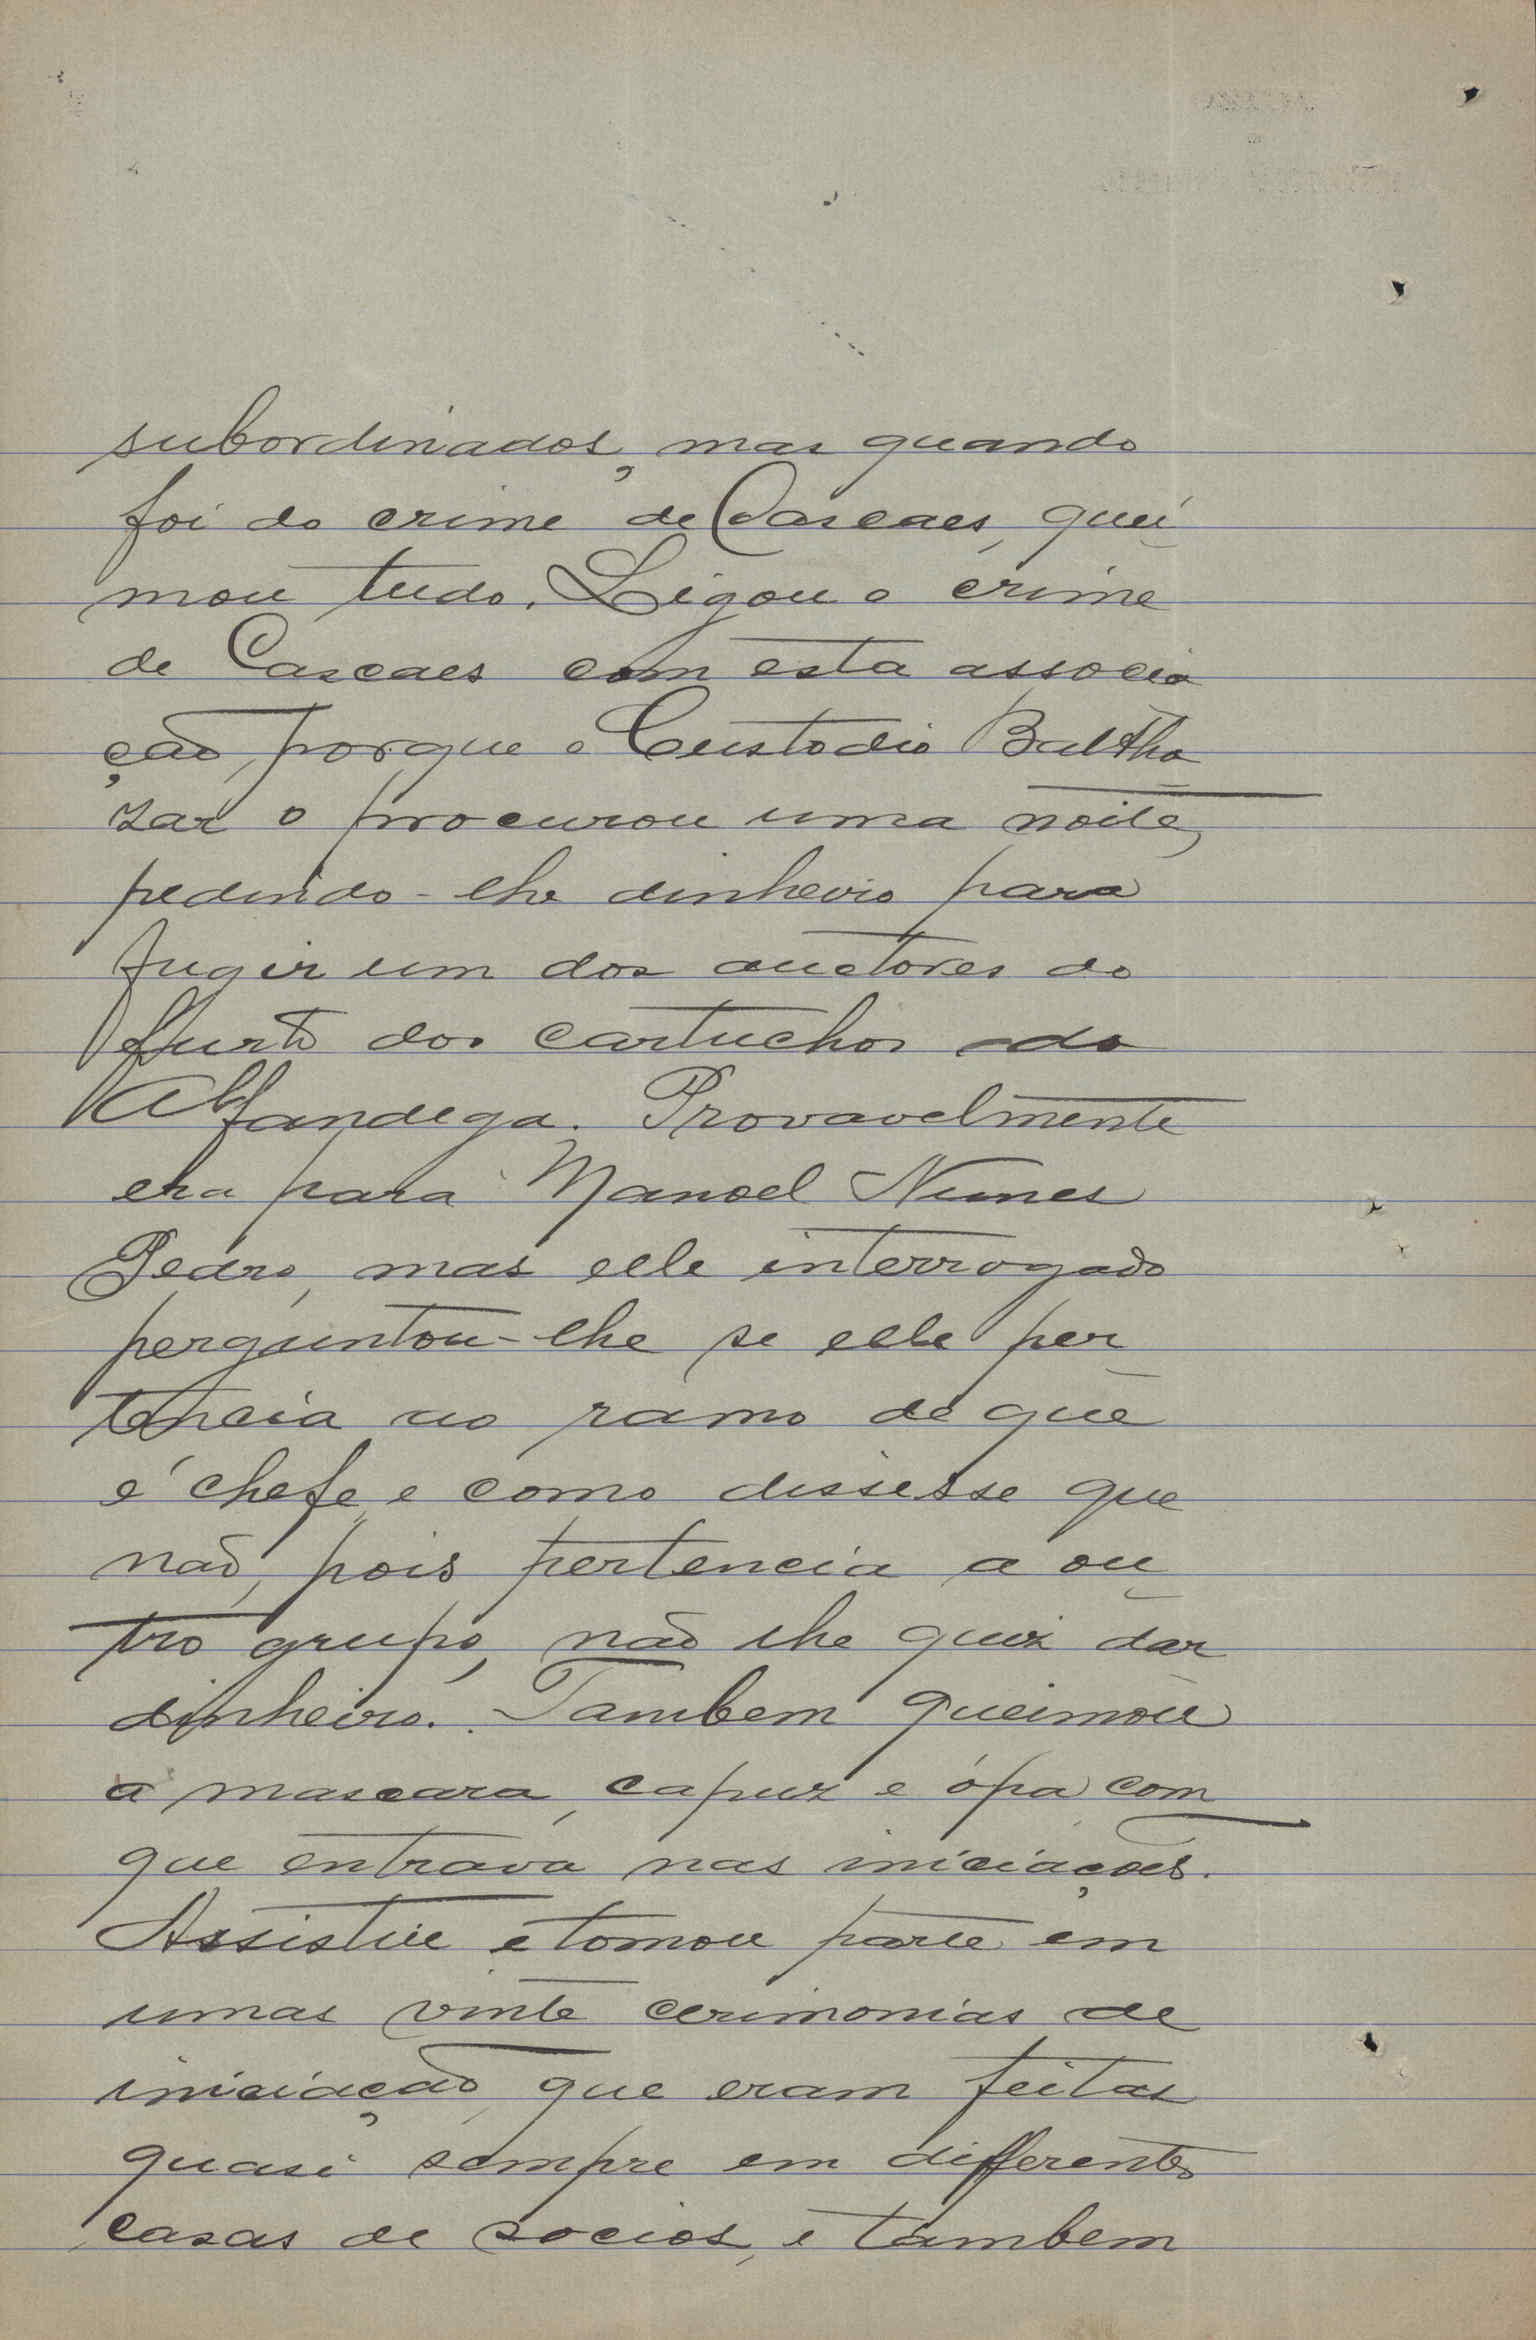 subordinados, mas quando
foi do crime de Cascaes, quei
mou tudo. Ligou o crime
de Cascaes com esta associa
ção, porque o Custodio Baltha
zar o procurou uma noite,
pedindo-lhe dinheiro para
fugir um dos auctores do
furto dos cartuchos da
Alfandega. Provavelmente
era para Manoel Nunes
Pedro, mas elle interrogado
perguntou-lhe se elle per
tencia ao ramo de que
é chefe, e como dissesse que
não, pois pertencia a ou
tro grupo, não lhe quiz dar
dinheiro. Tambem queimou
a mascara, capuz e ópa com
que entrava nas iniciações.
Assistiu e tomou parte em
umas vinte cerimonias de
iniciação, que eram feitas
quasi sempre em differentes
casas de socios, e tambem